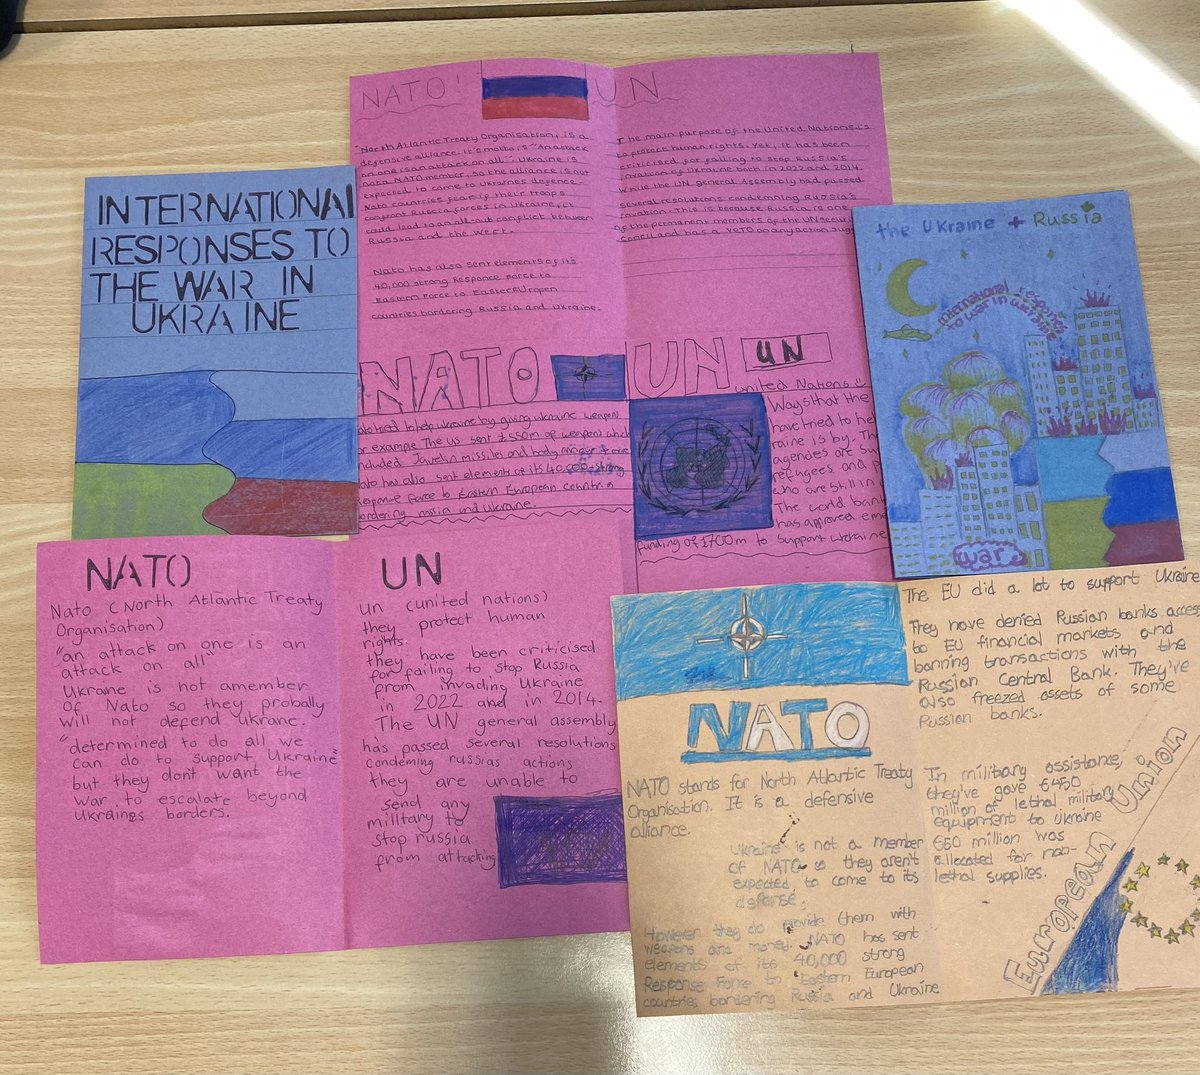 INTERNATIONAL
RESPONSES TO
THE WAR IN
UKRAINE
NATO!
"North Atlantic Treaty Organisation, is a
defensive alliance. It's motto is "An attack
on one is an attack on all". Ukraine is
not a NATO member, so the alliance is not
expected to come to Ukraines defence.
Nato countries fear if their troops
confront Russia forces in Ukraine, it
could lead to an all-out conflict between
Russia and the West.
Nato has also sent elements of its
40,000 strong Responce Force to
Eastern Force to Easter European
countries bordering Russia and Ukraine.
UN
The main purpose of the United Nations is
to protect human rights. Yet, it has been
criticised for failing to stop Russia's
invation of Ukraine both in 2022 and 2014.
While the UN general Assembly had passed
several resolutions condemning Russia's
invation. This is because Russia is one
of the permanent members of the UN secu
council and has a VETO on any action sugg
the Ukraine + Russia
international response
to war in ukraine
war
NATO
ato tried to help ukraine by giving ukraine weapons
or example The US sent £550m of weapons which
included Javelin missiles and body armour
ato has also sent elements of its 40,000-strong
response force to Eastern European Countries
bordering russia and Ukraine.
UN
UN
united Nations
Ways that the
have tried to hel
raine is by. The
agencies are su
refugees and p
who are still in
The world bank
has approved eme
funding of £700m to support ukraine
NATO
Nato (North Atlantic Treaty
Organisation)
"an attack on one is an
attack on all"
Ukraine is not amember
of Nato so they probally
will not defend ukrane.
"determined to do all we
can do to support Ukraine"
but they dont want the
war to escalate beyond
Ukraings borders.
UN
un (united nations)
they protect human
rights.
they have been criticised
for failing to stop Russia
from invading Ukraine
in 2022 and in 2014.
The UN general assembly
has passed several resolutions
condeming russias actions
they are unable to
send any
military to
stop russia
from attacking
NATO
NATO stands for North Atlantic Treaty
Organisation. It is a defensive
alliance.
Ukraine is not a member
of NATO so they aren't
expected to come to its
defense.
However they do provide them with
weapons and money. NATO has sent
elements of its 40,000 strong
Response Force to Eastern European
countries bordering Russia and Ukraine
The EU did a lot to support Ukraine
They have denied Russian banks access
to EU financial markets and
banning transactions with the
Russian Central Bank. They've
also freezed assets of some
Russian banks.
In military assistance,
they've gave €450
million of lethal military
equipment to Ukraine
€60 million was
allocated for non-
lethal supplies.
European Union